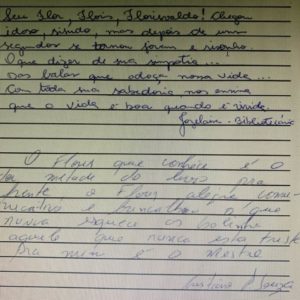 Seu Flor, Flóis, Florisvaldo! Chegou
idoso, sisudo, mas depois de uns
segundos se tornou jovem e risonho.
O que dizer de sua simpatia...
Das balas que adoça nossa vida...
Com toda sua sabedoria nos ensina
que a vida é boa quando é vivida.
Jozelaine - Bibliotecária
O Flóris que conheço é o
da metade do livro pra
frente o Flóris alegre comu-
nicativo e brincalhão o que
nunca esquece as balinhas
aquele que nunca está triste
Pra mim é o Mestre
Souza